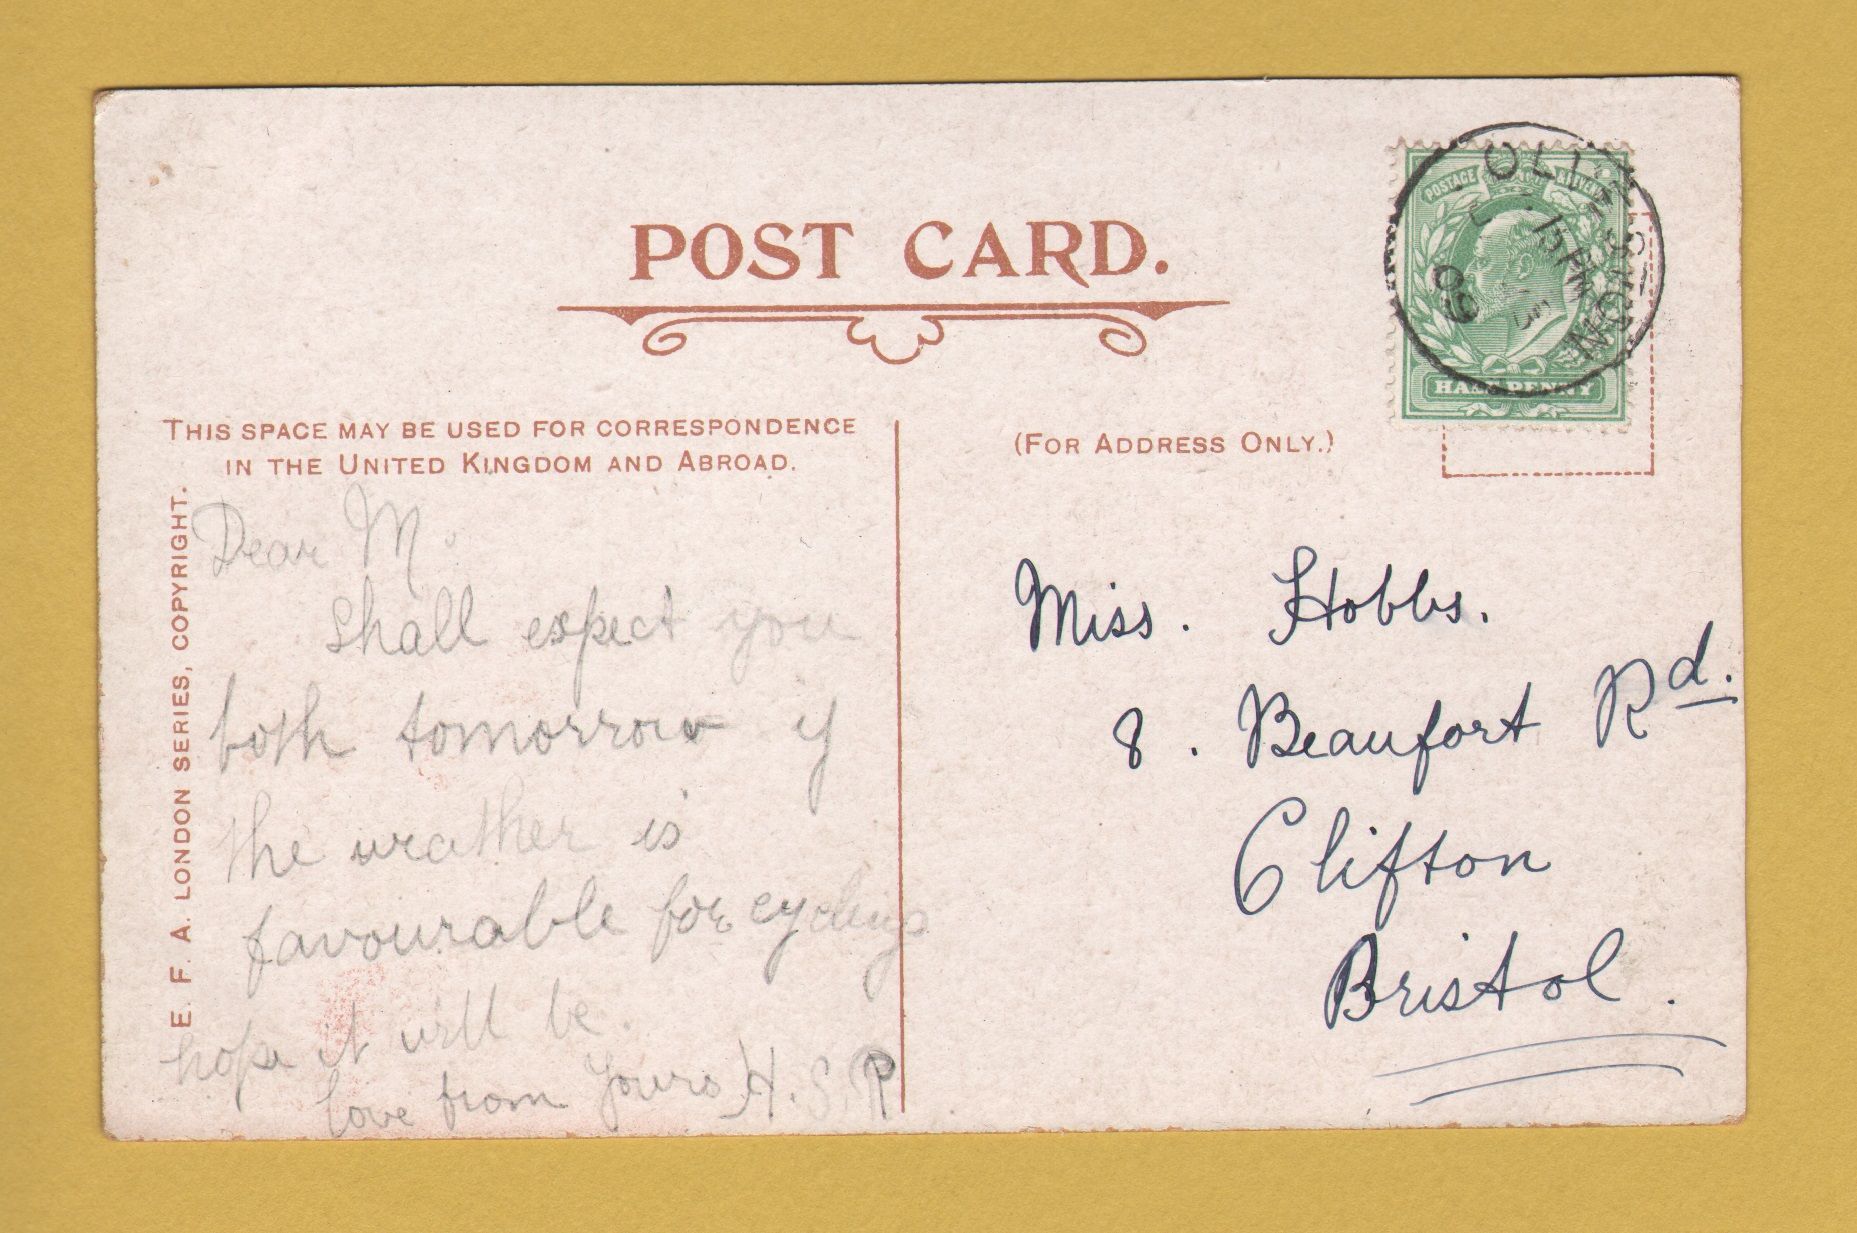 POST CARD.
THIS SPACE MAY BE USED FOR CORRESPONDENCE
IN THE UNITED KINGDOM AND ABROAD.
(FOR ADDRESS ONLY.)
E. F. A. LONDON SERIES, COPYRIGHT.
Dear M.
Shall expect you
both tomorrow if
the weather is
favourable for cycling
hope it will be.
love from Yours H. S. P
Miss. Hobbs.
8. Beaufort Rd.
Clifton
Bristol.
POSTAGE
HALFPENNY
15 PM
09